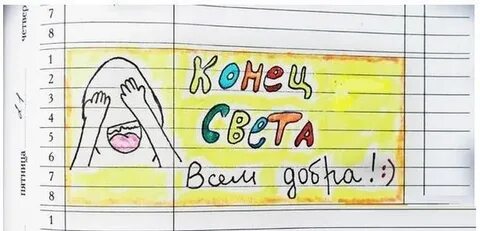 четвер
7
8
пятница
21
1
2
3
4
5
6
7
8
Конец
Света
Всем добра! :)
1